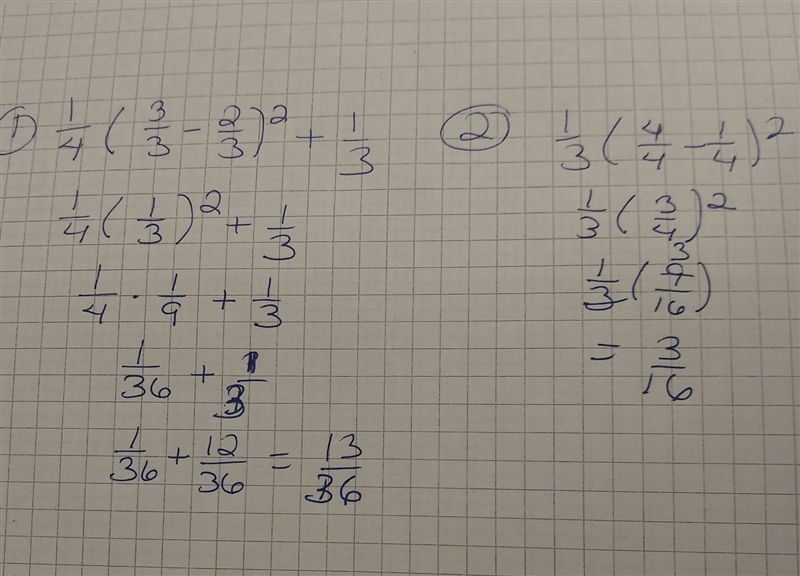 ① 1/4 ( 3/3 - 2/3 )² + 1/3
1/4 ( 1/3 )² + 1/3
1/4 · 1/9 + 1/3
1/36 + 1/3
1/36 + 12/36 = 13/36
② 1/3 ( 4/4 - 1/4 )²
1/3 ( 3/4 )²
1/3 ( 9/16 ) 3
= 3/16